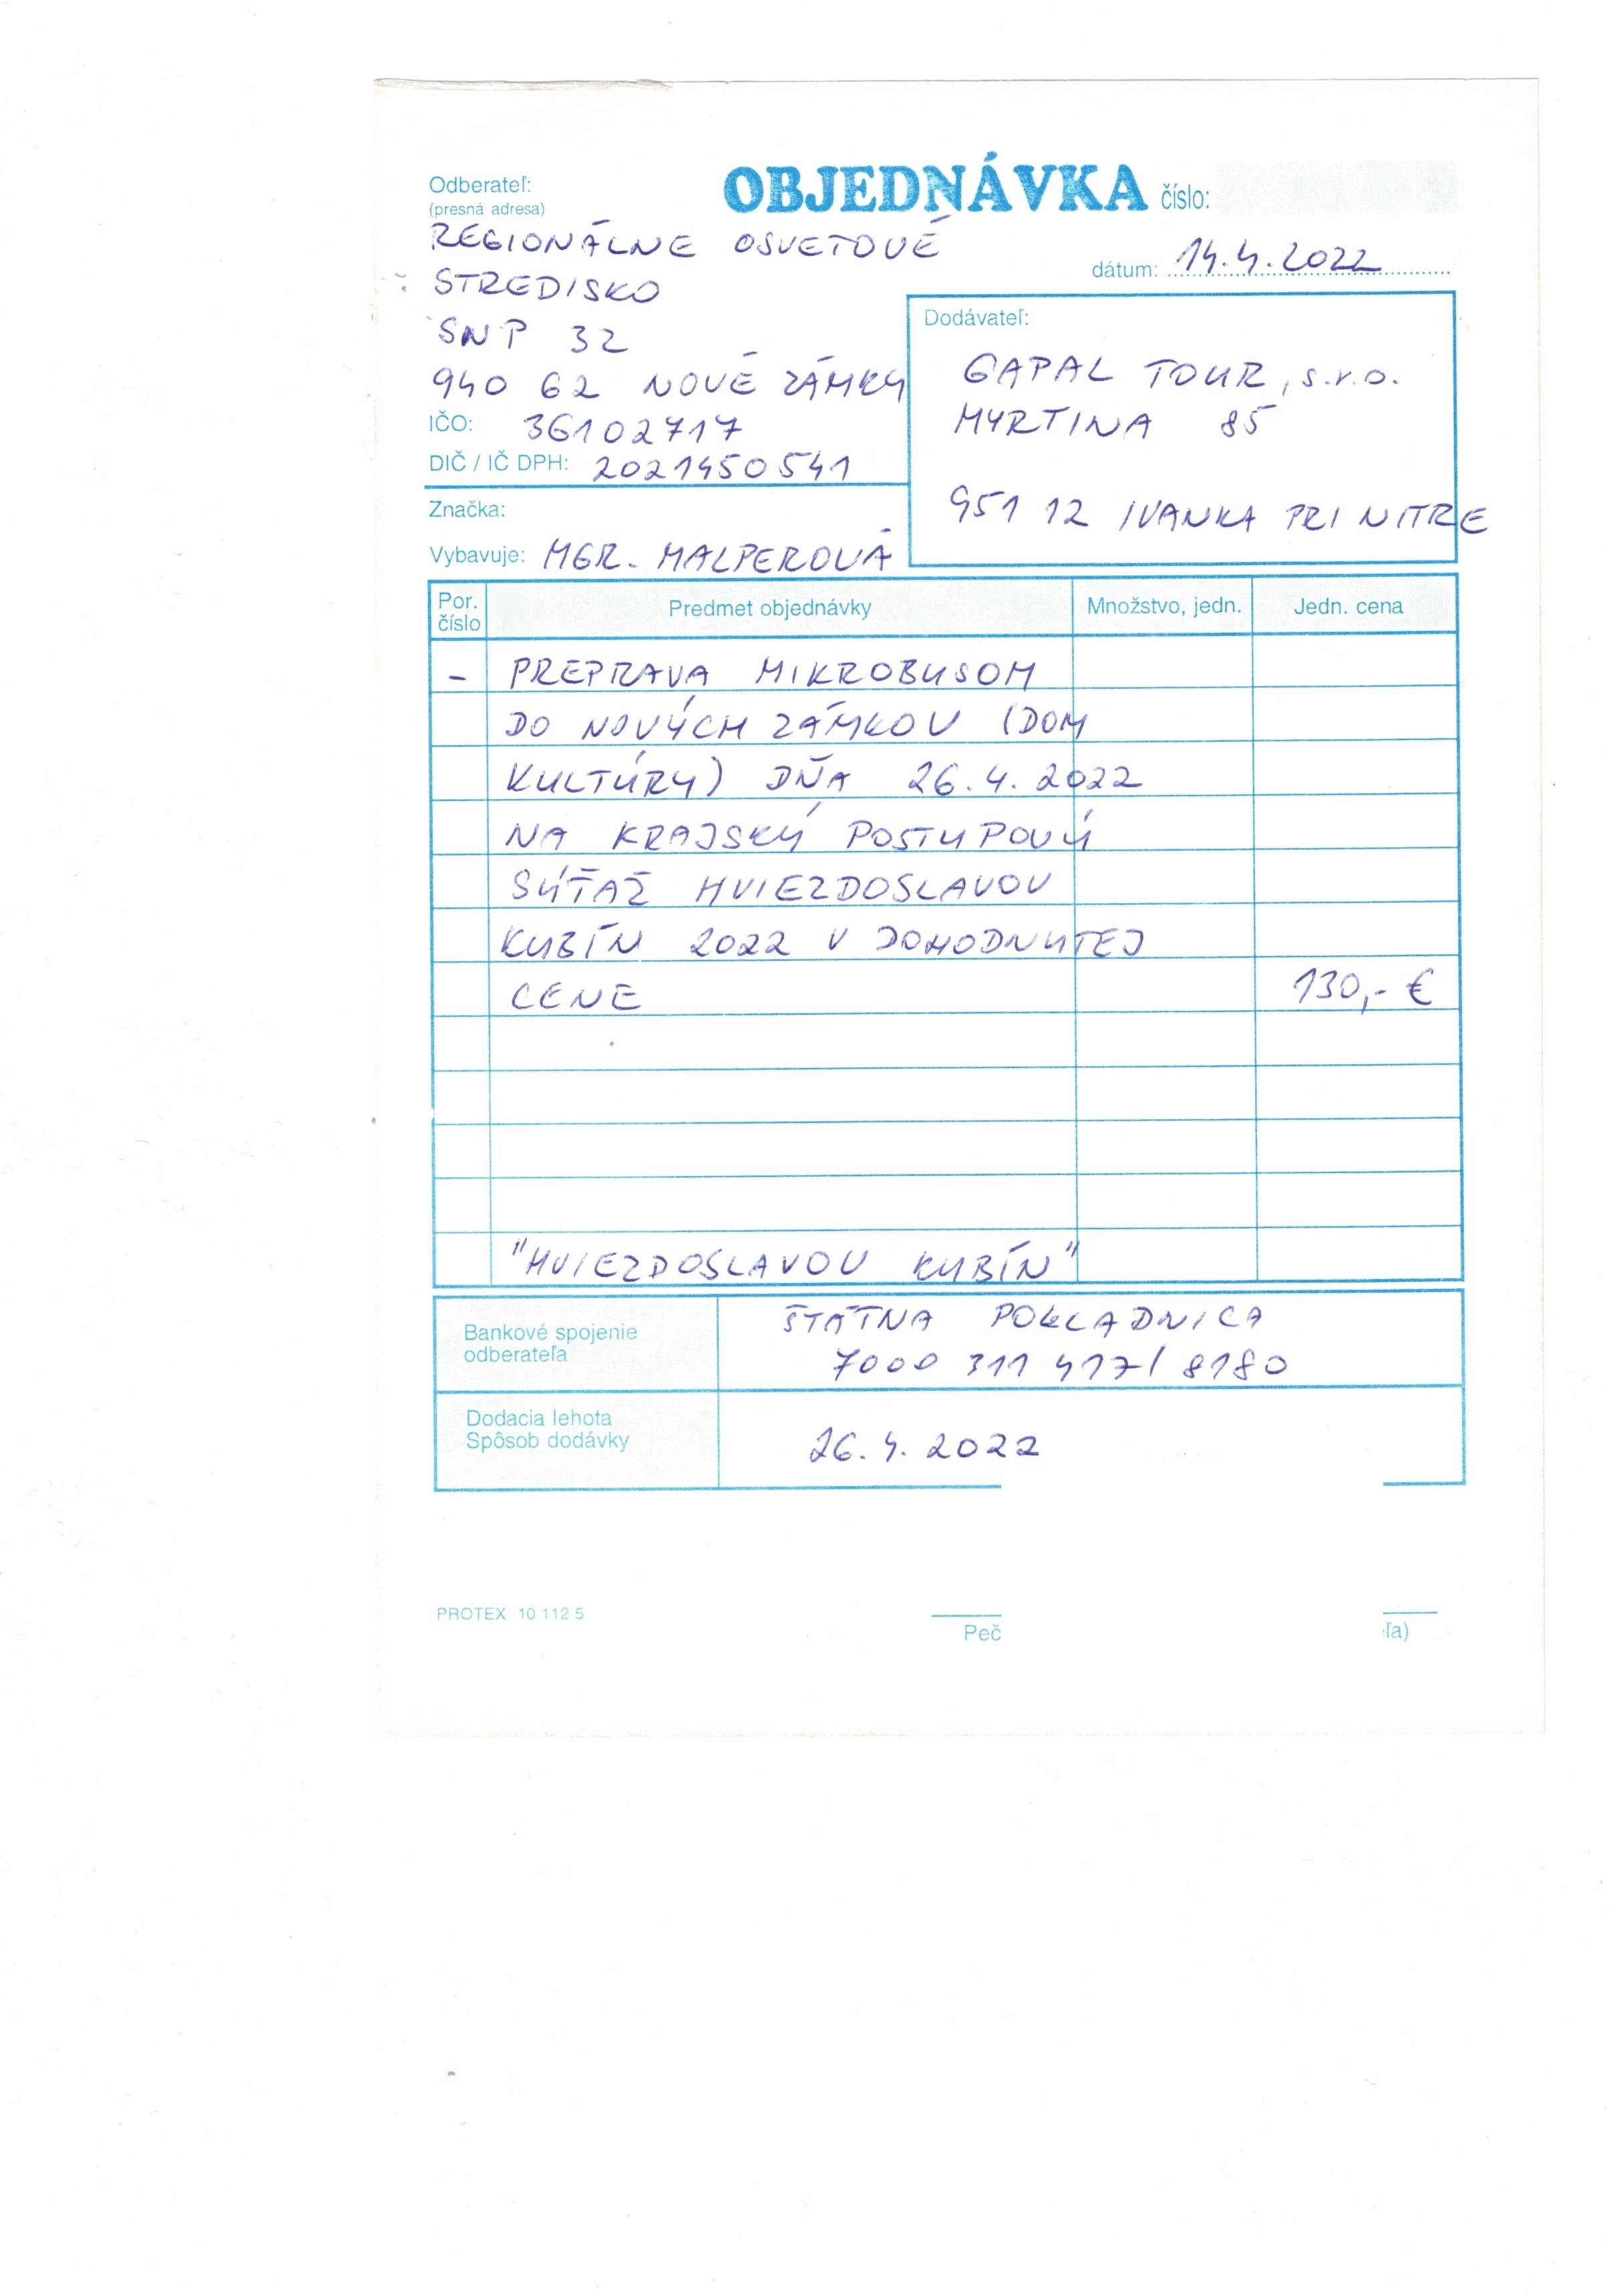 Odberateľ:
(presná adresa)
OBJEDNÁVKA číslo:
REGIONÁLNE OSVETOVÉ
STREDISKO
SNP 32
940 62 NOVÉ ZÁMKY
dátum: 14.4.2022
IČO: 36102717
DIČ / IČ DPH: 2021450541
Značka:
Vybavuje: MGR. MALPEROVÁ
Dodávateľ:
GAPAL TOUR, s.r.o.
MYRTINA 85
951 12 IVANKA PRI NITRE
Por. číslo Predmet objednávky Množstvo, jedn. Jedn. cena
- PREPRAVA MIKROBUSOM
DO NOVÝCH ZÁMKOV (DOM
KULTÚRY) DŇA 26.4.2022
NA KRAJSKÝ POSTUPOVÚ
SÚŤAŽ HVIEZDOSLAVOV
KUBÍN 2022 V DOHODNUTEJ
CENE 130,- €
"HVIEZDOSLAVOV KUBÍN"
Bankové spojenie
odberateľa
ŠTÁTNA POKLADNICA
7000 311 417/ 8180
Dodacia lehota
Spôsob dodávky
26.4.2022
PROTEX 10 112 5
Peč
ľa)